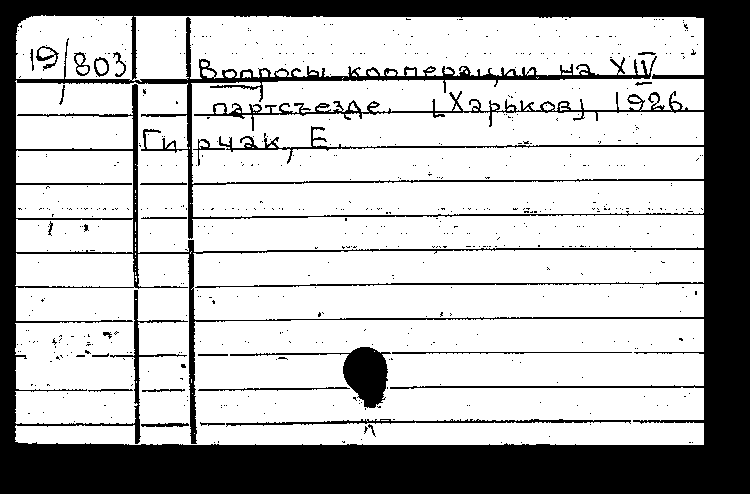 19/803 Вопросы кооперации на XIV
партсъезде. [Харьков], 1926.
Гирчак, Е.